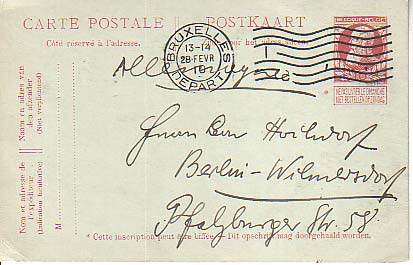 CARTE POSTALE POSTKAART
Côté réservé à l'adresse.
BRUXELLES
13-14
28 FEVR
DEPART
BELGIQUE
NE PAS LIVRER LE DIMANCHE
NIET BESTELLEN OP ZONDAG
Naam en adres van
den afzender
(Niet verplichtend)
Nom et adresse de
l'expéditeur
(Indication facultative)
M
Allemagne
Herrn
Berlin-Wilmersdorf
Pfalzburger Str. 58
* Cette inscription peut être biffée. — Dit opschrift mag doorgehaald worden.